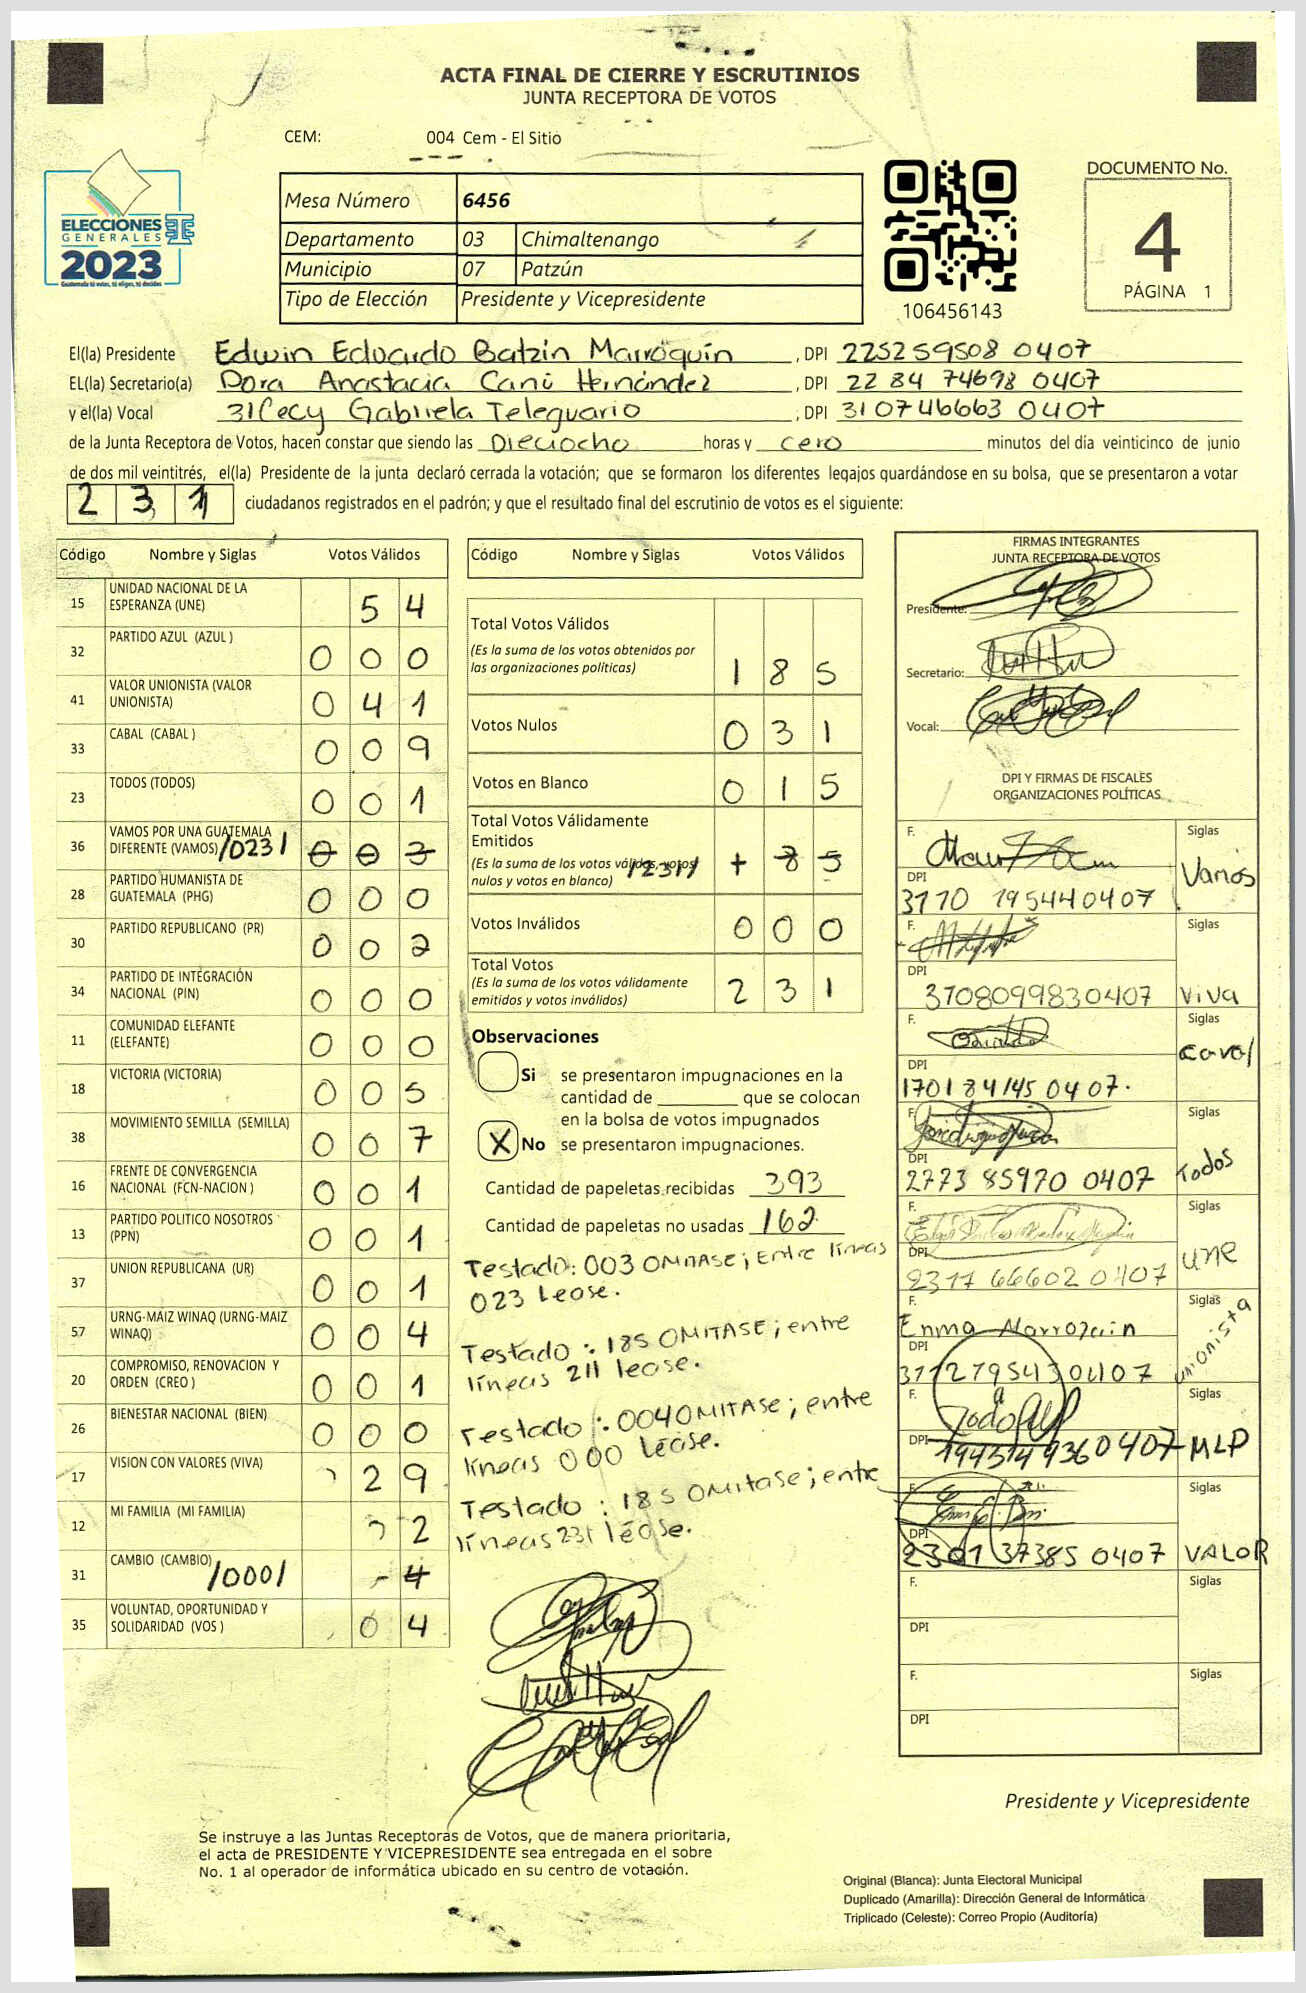 ACTA FINAL DE CIERRE Y ESCRUTINIOS
JUNTA RECEPTORA DE VOTOS
CEM: 004 Cem - El Sitio
ELECCIONES
GENERALES
2023
Guatemala tú votas, tú eliges, tú decides
Mesa Número 6456
Departamento 03 Chimaltenango
Municipio 07 Patzún
Tipo de Elección Presidente y Vicepresidente
106456143
DOCUMENTO No.
4
PÁGINA 1
El(la) Presidente Edwin Eduardo Batzin Marroquín , DPI 225259508 0407
EL(la) Secretario(a) Dora Anastacia Canú Hernández , DPI 2284 74698 0407
y el(la) Vocal 31Cecy Gabriela Teleguario , DPI 310746663 0407
de la Junta Receptora de Votos, hacen constar que siendo las Dieciocho horas y cero minutos del día veinticinco de junio
de dos mil veintitrés, el(la) Presidente de la junta declaró cerrada la votación; que se formaron los diferentes legajos quardándose en su bolsa, que se presentaron a votar
2 3 1 ciudadanos registrados en el padrón; y que el resultado final del escrutinio de votos es el siguiente:
Código Nombre y Siglas Votos Válidos
15 UNIDAD NACIONAL DE LA ESPERANZA (UNE) 5 4
32 PARTIDO AZUL (AZUL ) 0 0 0
41 VALOR UNIONISTA (VALOR UNIONISTA) 0 4 1
33 CABAL (CABAL ) 0 0 9
23 TODOS (TODOS) 0 0 1
36 VAMOS POR UNA GUATEMALA DIFERENTE (VAMOS) /023/ 0 0 3
28 PARTIDO HUMANISTA DE GUATEMALA (PHG) 0 0 0
30 PARTIDO REPUBLICANO (PR) 0 0 2
34 PARTIDO DE INTEGRACIÓN NACIONAL (PIN) 0 0 0
11 COMUNIDAD ELEFANTE (ELEFANTE) 0 0 0
18 VICTORIA (VICTORIA) 0 0 5
38 MOVIMIENTO SEMILLA (SEMILLA) 0 0 7
16 FRENTE DE CONVERGENCIA NACIONAL (FCN-NACION ) 0 0 1
13 PARTIDO POLITICO NOSOTROS (PPN) 0 0 1
37 UNION REPUBLICANA (UR) 0 0 1
57 URNG-MAIZ WINAQ (URNG-MAIZ WINAQ) 0 0 4
20 COMPROMISO, RENOVACION Y ORDEN (CREO ) 0 0 1
26 BIENESTAR NACIONAL (BIEN) 0 0 0
17 VISION CON VALORES (VIVA) 2 9
12 MI FAMILIA (MI FAMILIA) 2
31 CAMBIO (CAMBIO) /000/ 4
35 VOLUNTAD, OPORTUNIDAD Y SOLIDARIDAD (VOS ) 0 4
Código Nombre y Siglas Votos Válidos
Total Votos Válidos
(Es la suma de los votos obtenidos por las organizaciones políticas) 1 8 5
Votos Nulos 0 3 1
Votos en Blanco 0 1 5
Total Votos Válidamente Emitidos
(Es la suma de los votos válidos, votos nulos y votos en blanco) /231/ 1 8 5
Votos Inválidos 0 0 0
Total Votos
(Es la suma de los votos válidamente emitidos y votos inválidos) 2 3 1
Observaciones
Si se presentaron impugnaciones en la
cantidad de ________ que se colocan
en la bolsa de votos impugnados
X No se presentaron impugnaciones.
Cantidad de papeletas recibidas 393
Cantidad de papeletas no usadas 162
Testado: 003 OMITASE; Entre líneas
023 Lease.
Testado : 185 OMITASE; entre
líneas 211 lease.
Testado : 004 OMITASE; entre
líneas 000 léase.
Testado : 185 OMitase; entre
líneas 231 léase.
FIRMAS INTEGRANTES
JUNTA RECEPTORA DE VOTOS
Presidente:
Secretario:
Vocal:
DPI Y FIRMAS DE FISCALES
ORGANIZACIONES POLÍTICAS
F. Siglas
DPI Vamos
3170 195440407
F. Siglas
DPI
3708099830407 Viva
F. Siglas
DPI
1701 84145 0407.
F. Siglas
DPI
2773 85970 0407 Todos
F. Siglas
DPI UNE
2317 66602 0407
F. Siglas
DPI Unionista
F. Siglas
DPI MLP
F. Siglas
DPI
2301 37385 0407 VALOR
F. Siglas
DPI
F. Siglas
DPI
Presidente y Vicepresidente
Se instruye a las Juntas Receptoras de Votos, que de manera prioritaria,
el acta de PRESIDENTE Y VICEPRESIDENTE sea entregada en el sobre
No. 1 al operador de informática ubicado en su centro de votación.
Original (Blanca): Junta Electoral Municipal
Duplicado (Amarilla): Dirección General de Informática
Triplicado (Celeste): Correo Propio (Auditoría)